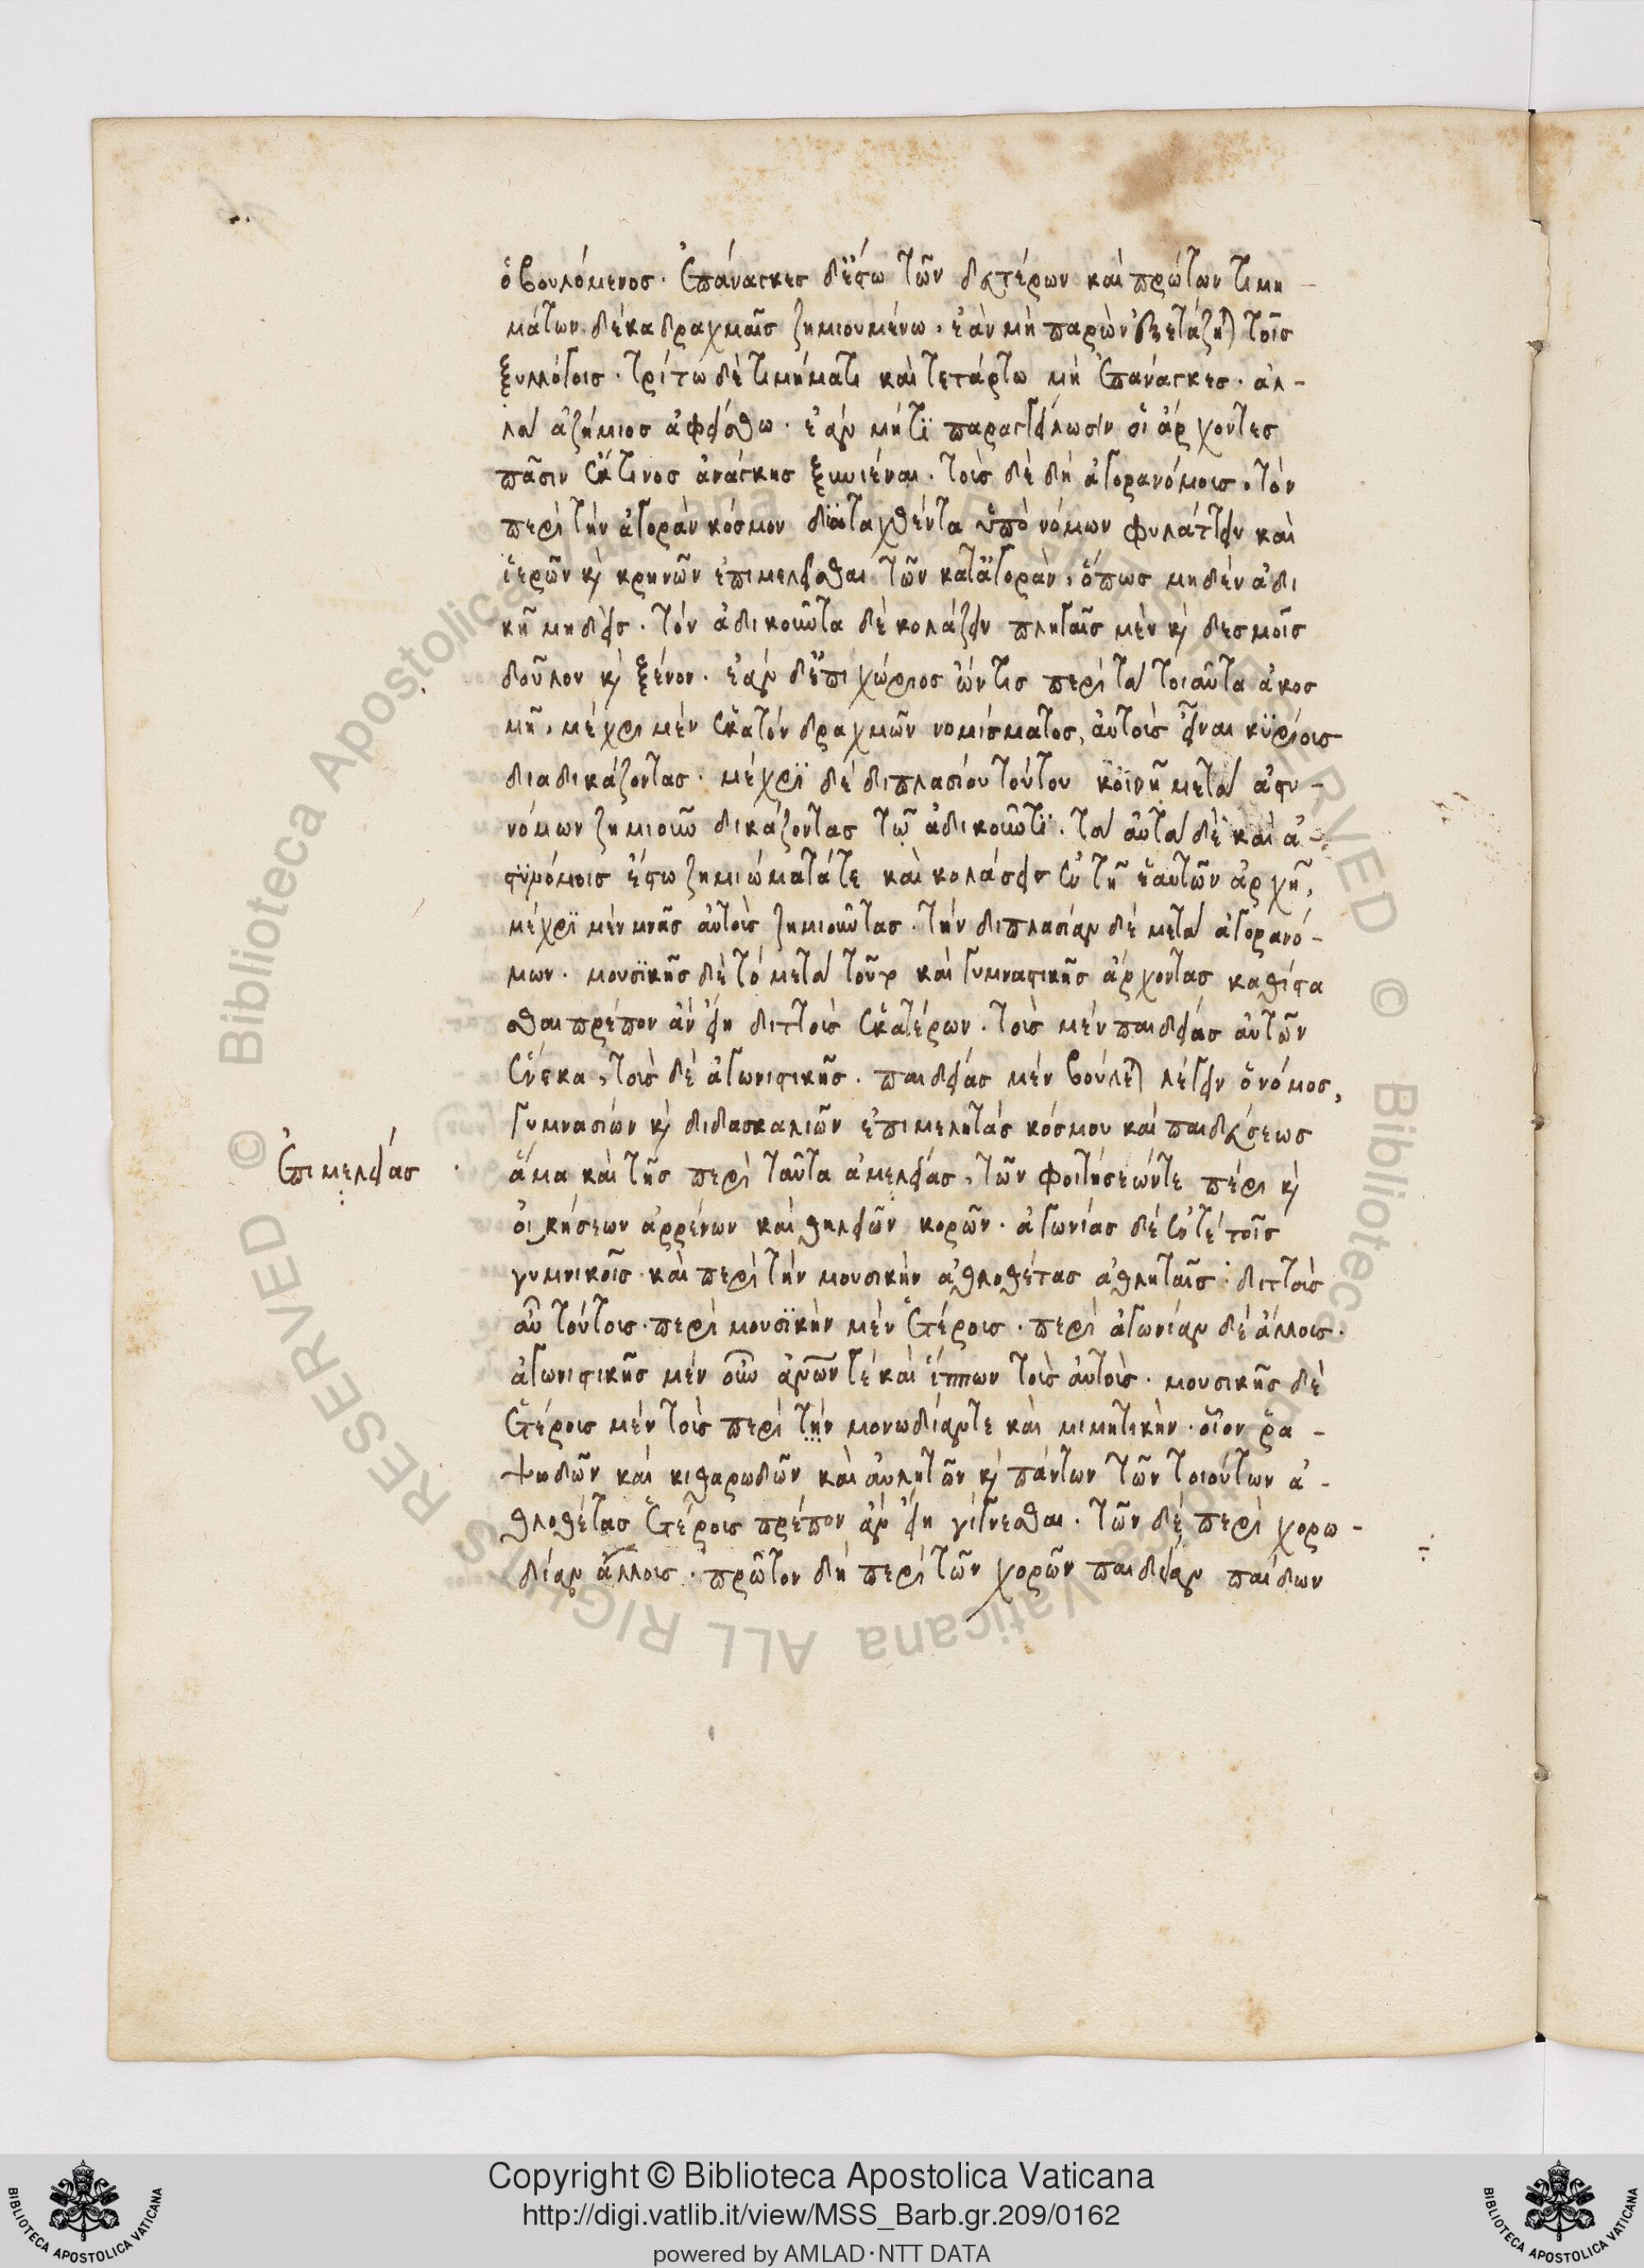 ὁ βουλόμενος. ἐπάναγκες δ' ἔστω τῶν δευτέρων καὶ πρώτων τιμη-
μάτων. δέκα δραχμαῖς ζημιουμένω. ἐὰν μὴ παρὼν ἐξετάζηται τοῖς
ξυλλόγοις. τρίτω δὲ τιμήματι καὶ τετάρτω μὴ ἐπάναγκες. ἀλ-
λὰ ἀζήμιος ἀφείσθω. ἐὰν μήτι παραγγείλωσιν οἱ ἄρχοντες
πᾶσιν ἔκ τινος ἀνάγκης ξυνιέναι. τοὺς δὲ δὴ ἀγορανόμους. τὸν
περὶ τὴν ἀγορὰν κόσμον διαταχθέντα ὑπὸ νόμων φυλάττειν καὶ
ἱερῶν καὶ κρηνῶν ἐπιμελεῖσθαι τῶν κατ' ἀγορὰν. ὅπως μηδὲν ἀδι
κῆ μηδεὶς. τὸν ἀδικοῦντα δὲ κολάζειν πληγαῖς μὲν καὶ δεσμοῖς
δοῦλον καὶ ξένον. ἐὰν δ' ἐπιχώριος ὤν τις περὶ τὰ τοιαῦτα ἀκοσ
μῆ. μέχρι μὲν ἑκατὸν δραχμῶν νομίσματος, αὐτοὺς εἶναι κυρίους
διαδικάζοντας. μέχρι δὲ διπλασίου τούτου κοινῆ μετὰ ἀστυ-
νόμων ζημιοῦν δικάζοντας τῷ ἀδικοῦντι. τὰ αὐτὰ δὲ καὶ ἀ-
στυνόμοις ἔστω ζημιώματά τε καὶ κολάσεις ἐν τῆ ἑαυτῶν ἀρχῆ,
μέχρι μὲν μνᾶς αὐτοὺς ζημιοῦντας. τὴν διπλασίαν δὲ μετὰ ἀγορανό-
μων. μουσικῆς δὲ τὸ μετὰ τοῦτο καὶ γυμναστικῆς ἄρχοντας καθίστα
σθαι πρέπον ἂν εἴη διττοὺς ἑκατέρων. τοὺς μὲν παιδείας αὐτῶν
ἕνεκα, τοὺς δὲ ἀγωνιστικῆς. παιδείας μὲν βούλεται λέγειν ὁ νόμος,
γυμνασίων καὶ διδασκαλιῶν ἐπιμελητὰς κόσμου καὶ παιδεύσεως
ἅμα καὶ τῆς περὶ ταῦτα ἀμελείας, τῶν φοιτήσεών τε πέρι καὶ
οἰκήσεων ἀρρένων καὶ θηλειῶν κορῶν. ἀγωνίας δὲ ἔν τε τοῖς
γυμνικοῖς καὶ περὶ τὴν μουσικὴν ἀθλοθέτας ἀθληταῖς. διττοὺς
αὖ τούτους. περὶ μουσικὴν μὲν ἑτέρους. περὶ ἀγωνίαν δὲ ἄλλους.
ἀγωνιστικῆς μὲν οὖν ἀνθρώπων τε καὶ ἵππων τοὺς αὐτοὺς. μουσικῆς δὲ
ἑτέρους μὲν τοὺς περὶ τὴν μονωδίαν τε καὶ μιμητικὴν. οἷον ῥα-
ψωδῶν καὶ κιθαρωδῶν καὶ αὐλητῶν καὶ πάντων τῶν τοιούτων ἀ-
θλοθέτας ἑτέρους πρέπον ἂν εἴη γίγνεσθαι. τῶν δὲ περὶ χορω-
δίαν ἄλλους. πρῶτον δὴ περὶ τῶν χορῶν παιδείαν παίδων
ἐπιμελείας
© Biblioteca Apostolica Vaticana ALL RIGHTS RESERVED
BIBLIOTECA APOSTOLICA VATICANA
Copyright © Biblioteca Apostolica Vaticana
http://digi.vatlib.it/view/MSS_Barb.gr.209/0162
powered by AMLAD·NTT DATA
BIBLIOTECA APOSTOLICA VATICANA